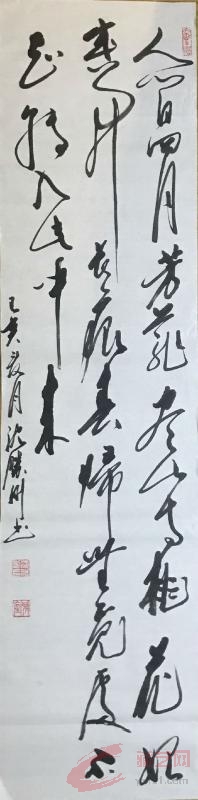 人間四月芳菲尽山寺桃花始
盛開長恨春歸無覓處不
知轉入此中来
亥夏月